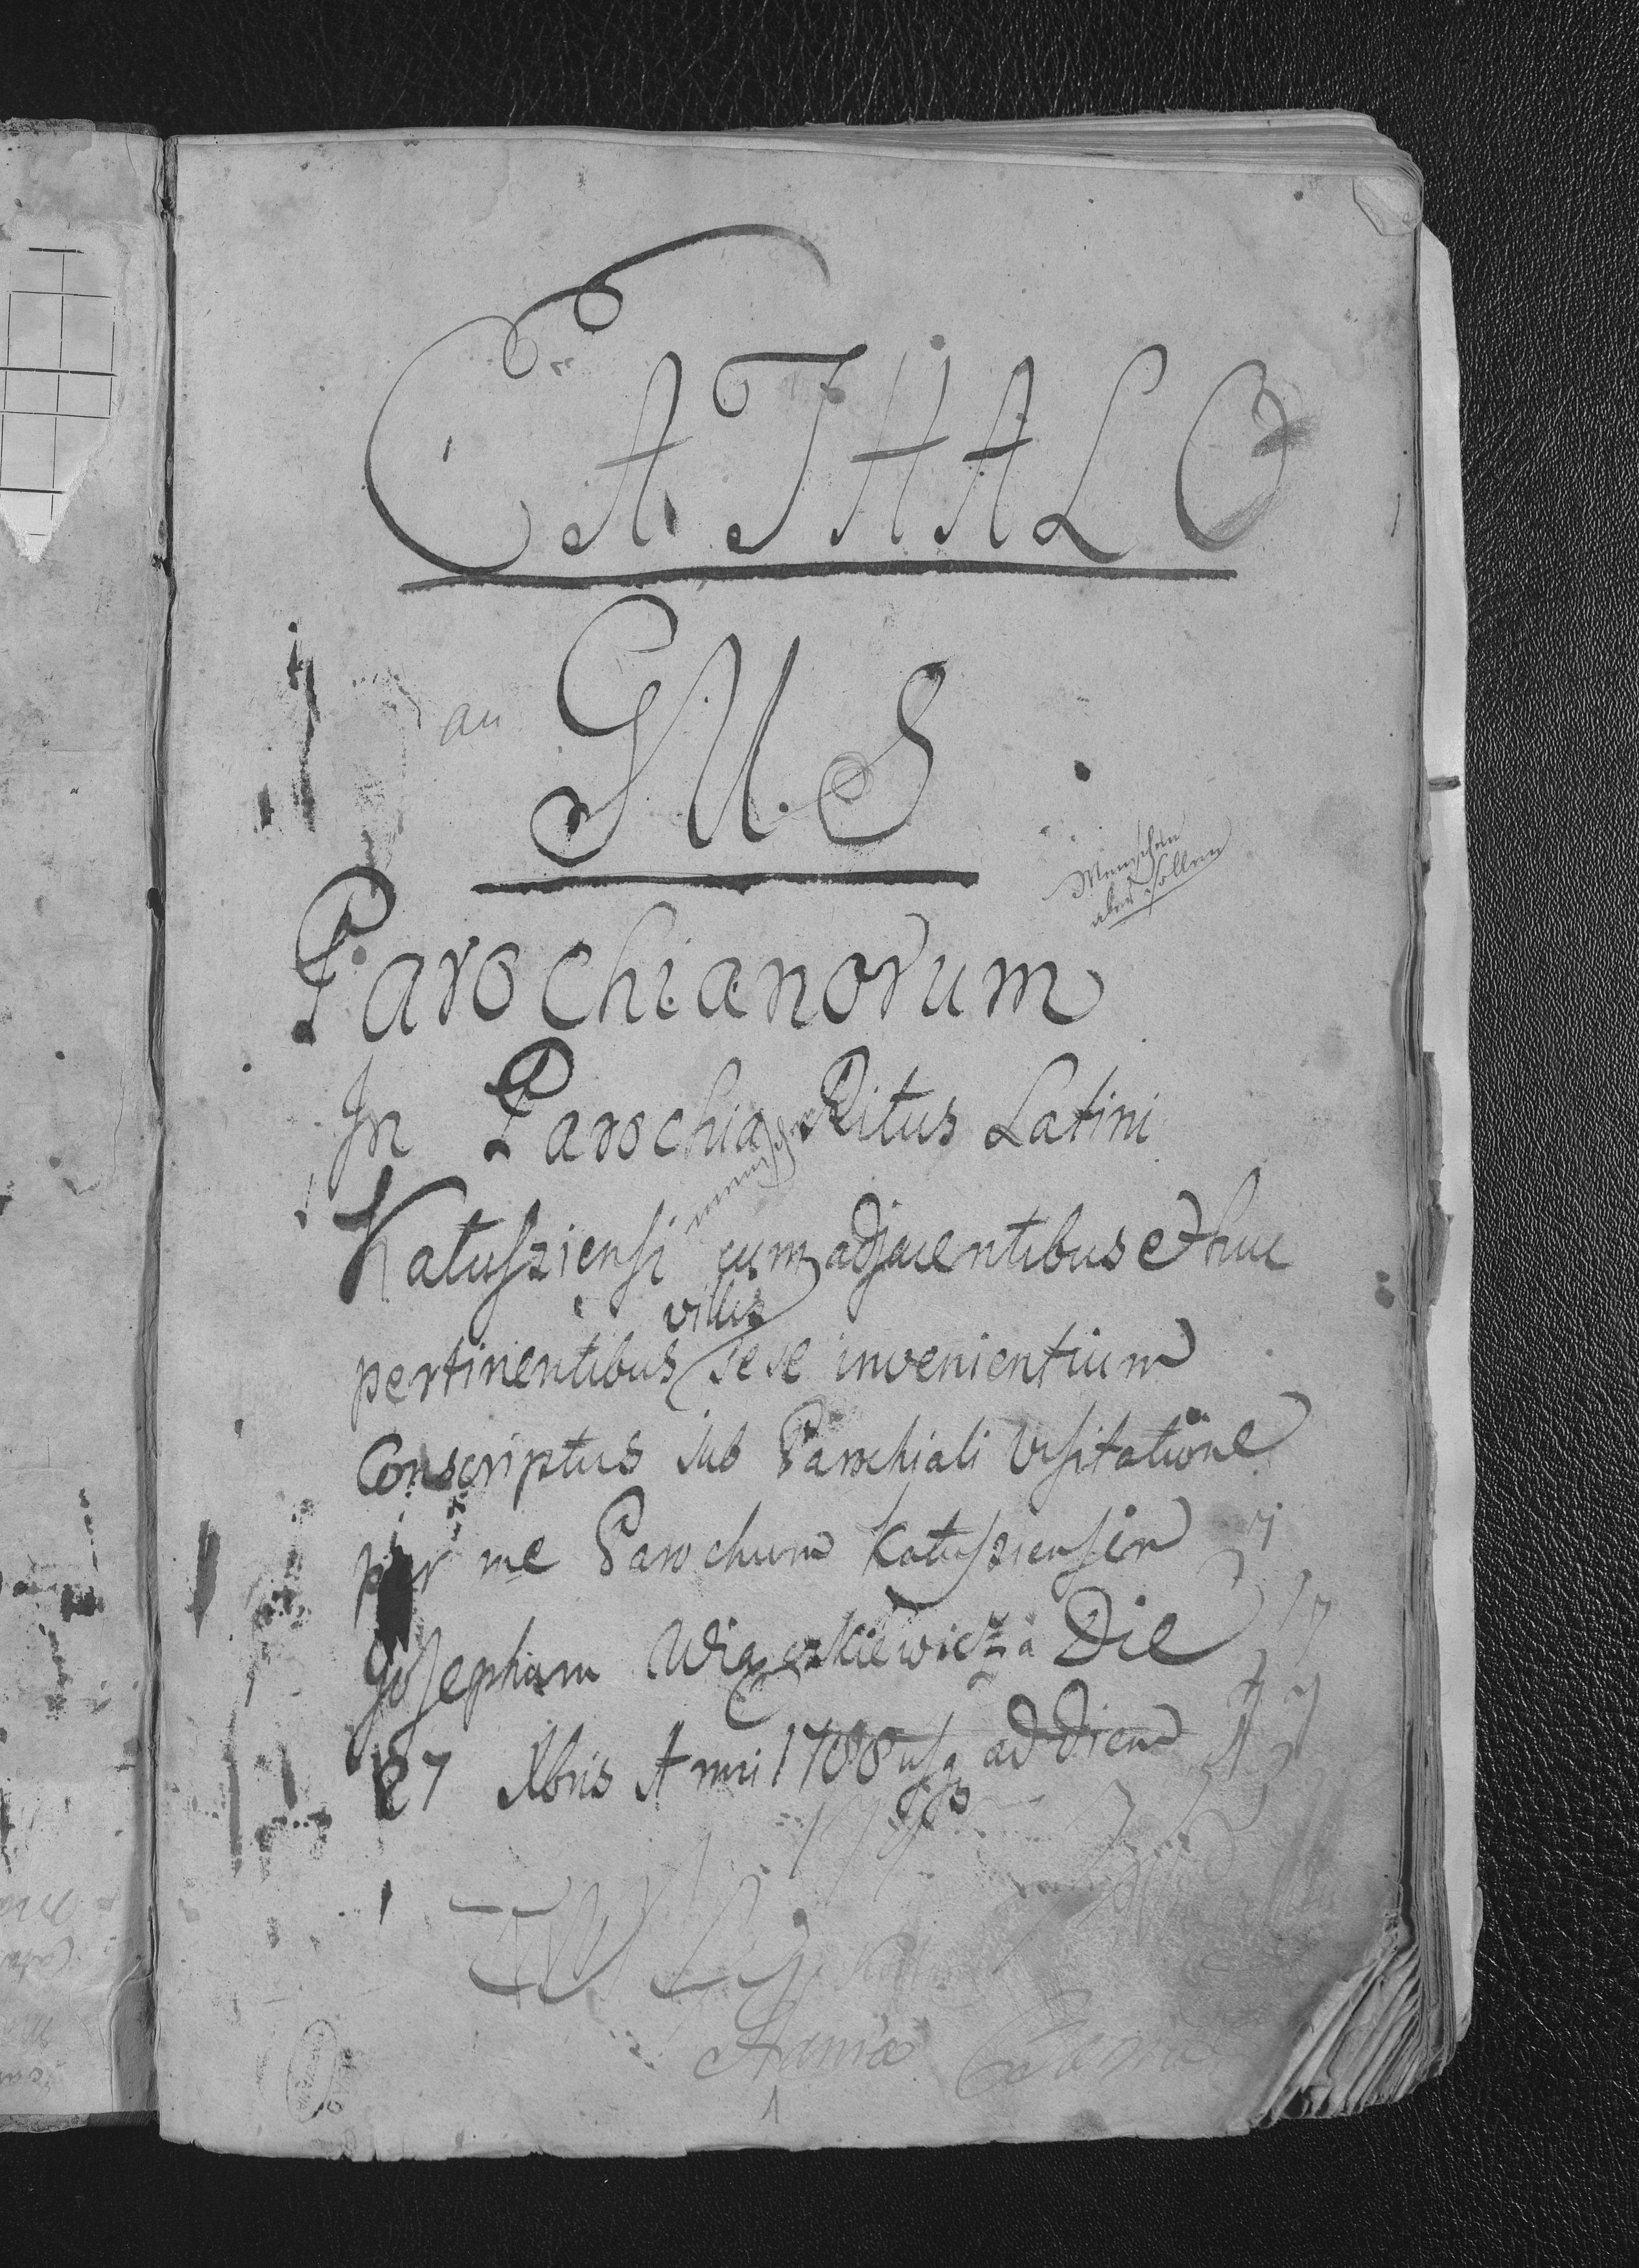 CATHALO
GUS
au
Menschen
aber sollen
Parochianorum
In Parochia Ritus Latini
Katusziensi cum adjacentibus et huc
villis
pertinentibus sese invenientium
Conscriptus sub Parochiali Visitatione
per me Parochum Katusziensem
Josephum Wiączkiewicz a Die
27 Xbris Anni 1788 usq ad diem
178
Hania Hania
1